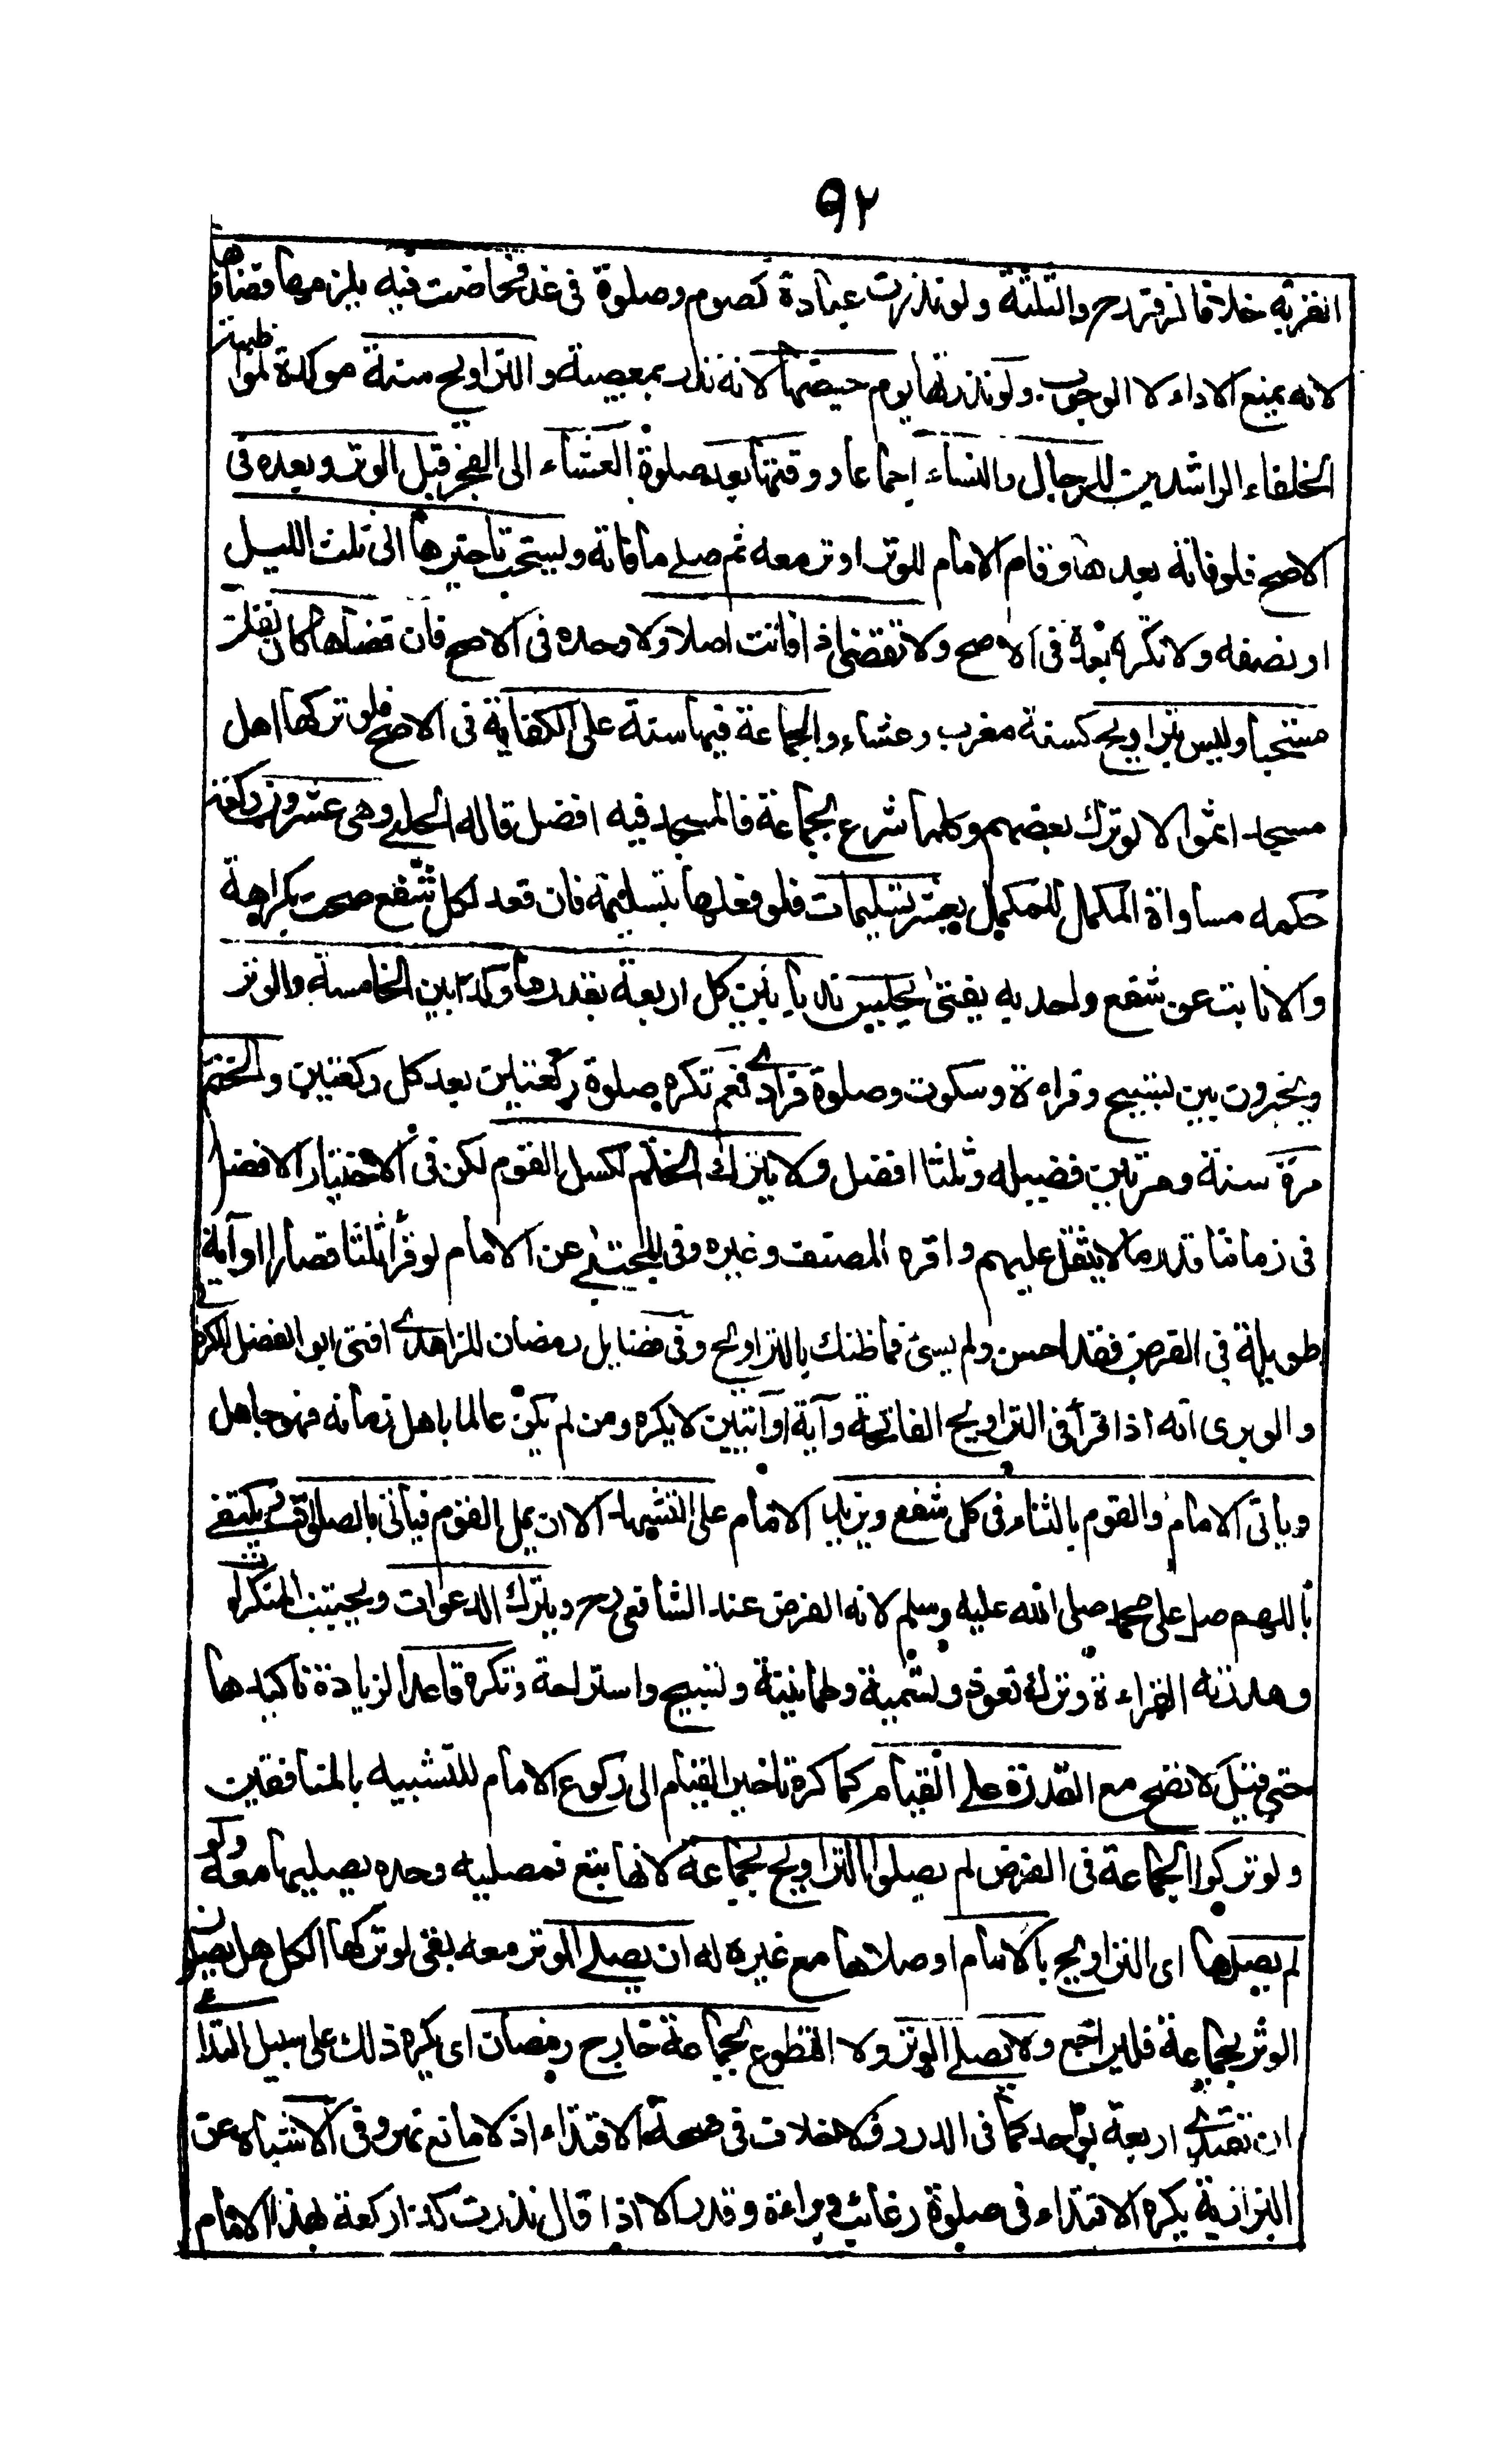 ٩٢
انفرتبه خلافا لزفر رح والثلثة ولو نذرت عبادة كصوم وصلوة فى غد فحاضت فيه يلزمها قضاؤها
لانه يمنع الاداء لا الوجوب ولو نذرتها يوم حيضها لانه نذر بمعصية والتراويح سنة موكدة لمواظبة
الخلفاء الراشدين للرجال والنساء اجماعا ووقتها بعد صلوة العشاء الى الفجر قبل الوتر وبعده فى
الاصح فلو فاته بعدها وقام الامام للوتر اوتر معه ثم صلے ما فاته ويستحب تاخيرها الى ثلث الليل
او نصفه ولا تكره بعده فى الاصح ولا تقضى اذا فاتت اصلا ولا وحده فى الاصح فان قضاها كان نفلا
مستحبا وليس بتراويح كسنة مغرب وعشاء والجماعة فيها سنة على الكفاية فى الاصح فلو تركها اهل
مسجد اثموا لا لو ترك بعضهم وكلما شرع بجماعة فالمسجد فيه افضل قاله الحلبے وهى عشرون ركعة
حكمه مساواة المكمل للمكمل بعشر تسليمات فلو فعلها بتسليمة فان قعد لكل شفع صحت بكراهة
والا نابت عن شفع واحد به يفتى يجلس ندبا بين كل اربعة بقدرها وكذا بين الخامسة والوتر
ويخيرون بين تسبيح وقراءة وسكوت وصلوة فرادے نعم تكره صلوة ركعتين بعد كل ركعتين والختم
مرة سنة ومرتين فضيله وثلثا افضل ولا يترك الختم لكسل القوم لكن فى الاختيار الافضل
فى زماننا قدر ما لا يثقل عليهم واقره المصنف وغيره وفى المجتبے عن الامام لو قرأ ثلثا قصارا او آية
طويلة فى الفرض فقد احسن ولم يسئ فما ظنك بالتراويح وفى فضايل رمضان للزاهدے افتى ابو الفضل الكرمانے
والوبرى انه اذا قرأ فى التراويح الفاتحة وآية او آيتين لا يكره ومن لم يكن عالما باهل زمانه فهو جاهل
وياتى الامام والقوم بالثناء فى كل شفع ويزيد الامام على التشهد الا ان يمل القوم فياتى بالصلوات ويكتفے
باللهم صل على محمد صلى الله عليه وسلم لانه الفرض عند الشافعى رح ويترك الدعوات ويجتنب المنكرات
وهذرته القراءة وترك تعوذ وتسمية وطمانينة وتسبيح واستراحة وتكره قاعدا لزيادة تاكيدها
حتى قيل لا تصح مع القدرة على القيام كما كره تاخير القيام الى ركوع الامام للتشبيه بالمنافقين
ولو تركوا الجماعة فى الفرض لم يصلوا التراويح بجماعة لانها تبع فمصليه وحده يصليها معه ولو
لم يصلها اى التراويح بالامام او صلاها مع غيره له ان يصلے الوتر معه بقى لو تركها الكل هل يصلون
الوتر بجماعة فليراجع ولا يصلے الوتر ولا التطوع بجماعة خارج رمضان اى يكره ذلك على سبيل التداعے
ان يقتدے اربعة بواحد كما فى الدرر ولا خلاف فى صحة الاقتداء اذ لا مانع نهر وفى الاشباه عن
البزازية يكره الاقتداء فى صلوة رغائب وبراءة وقدر الا اذا قال نذرت كذا ركعة لهذا الامام